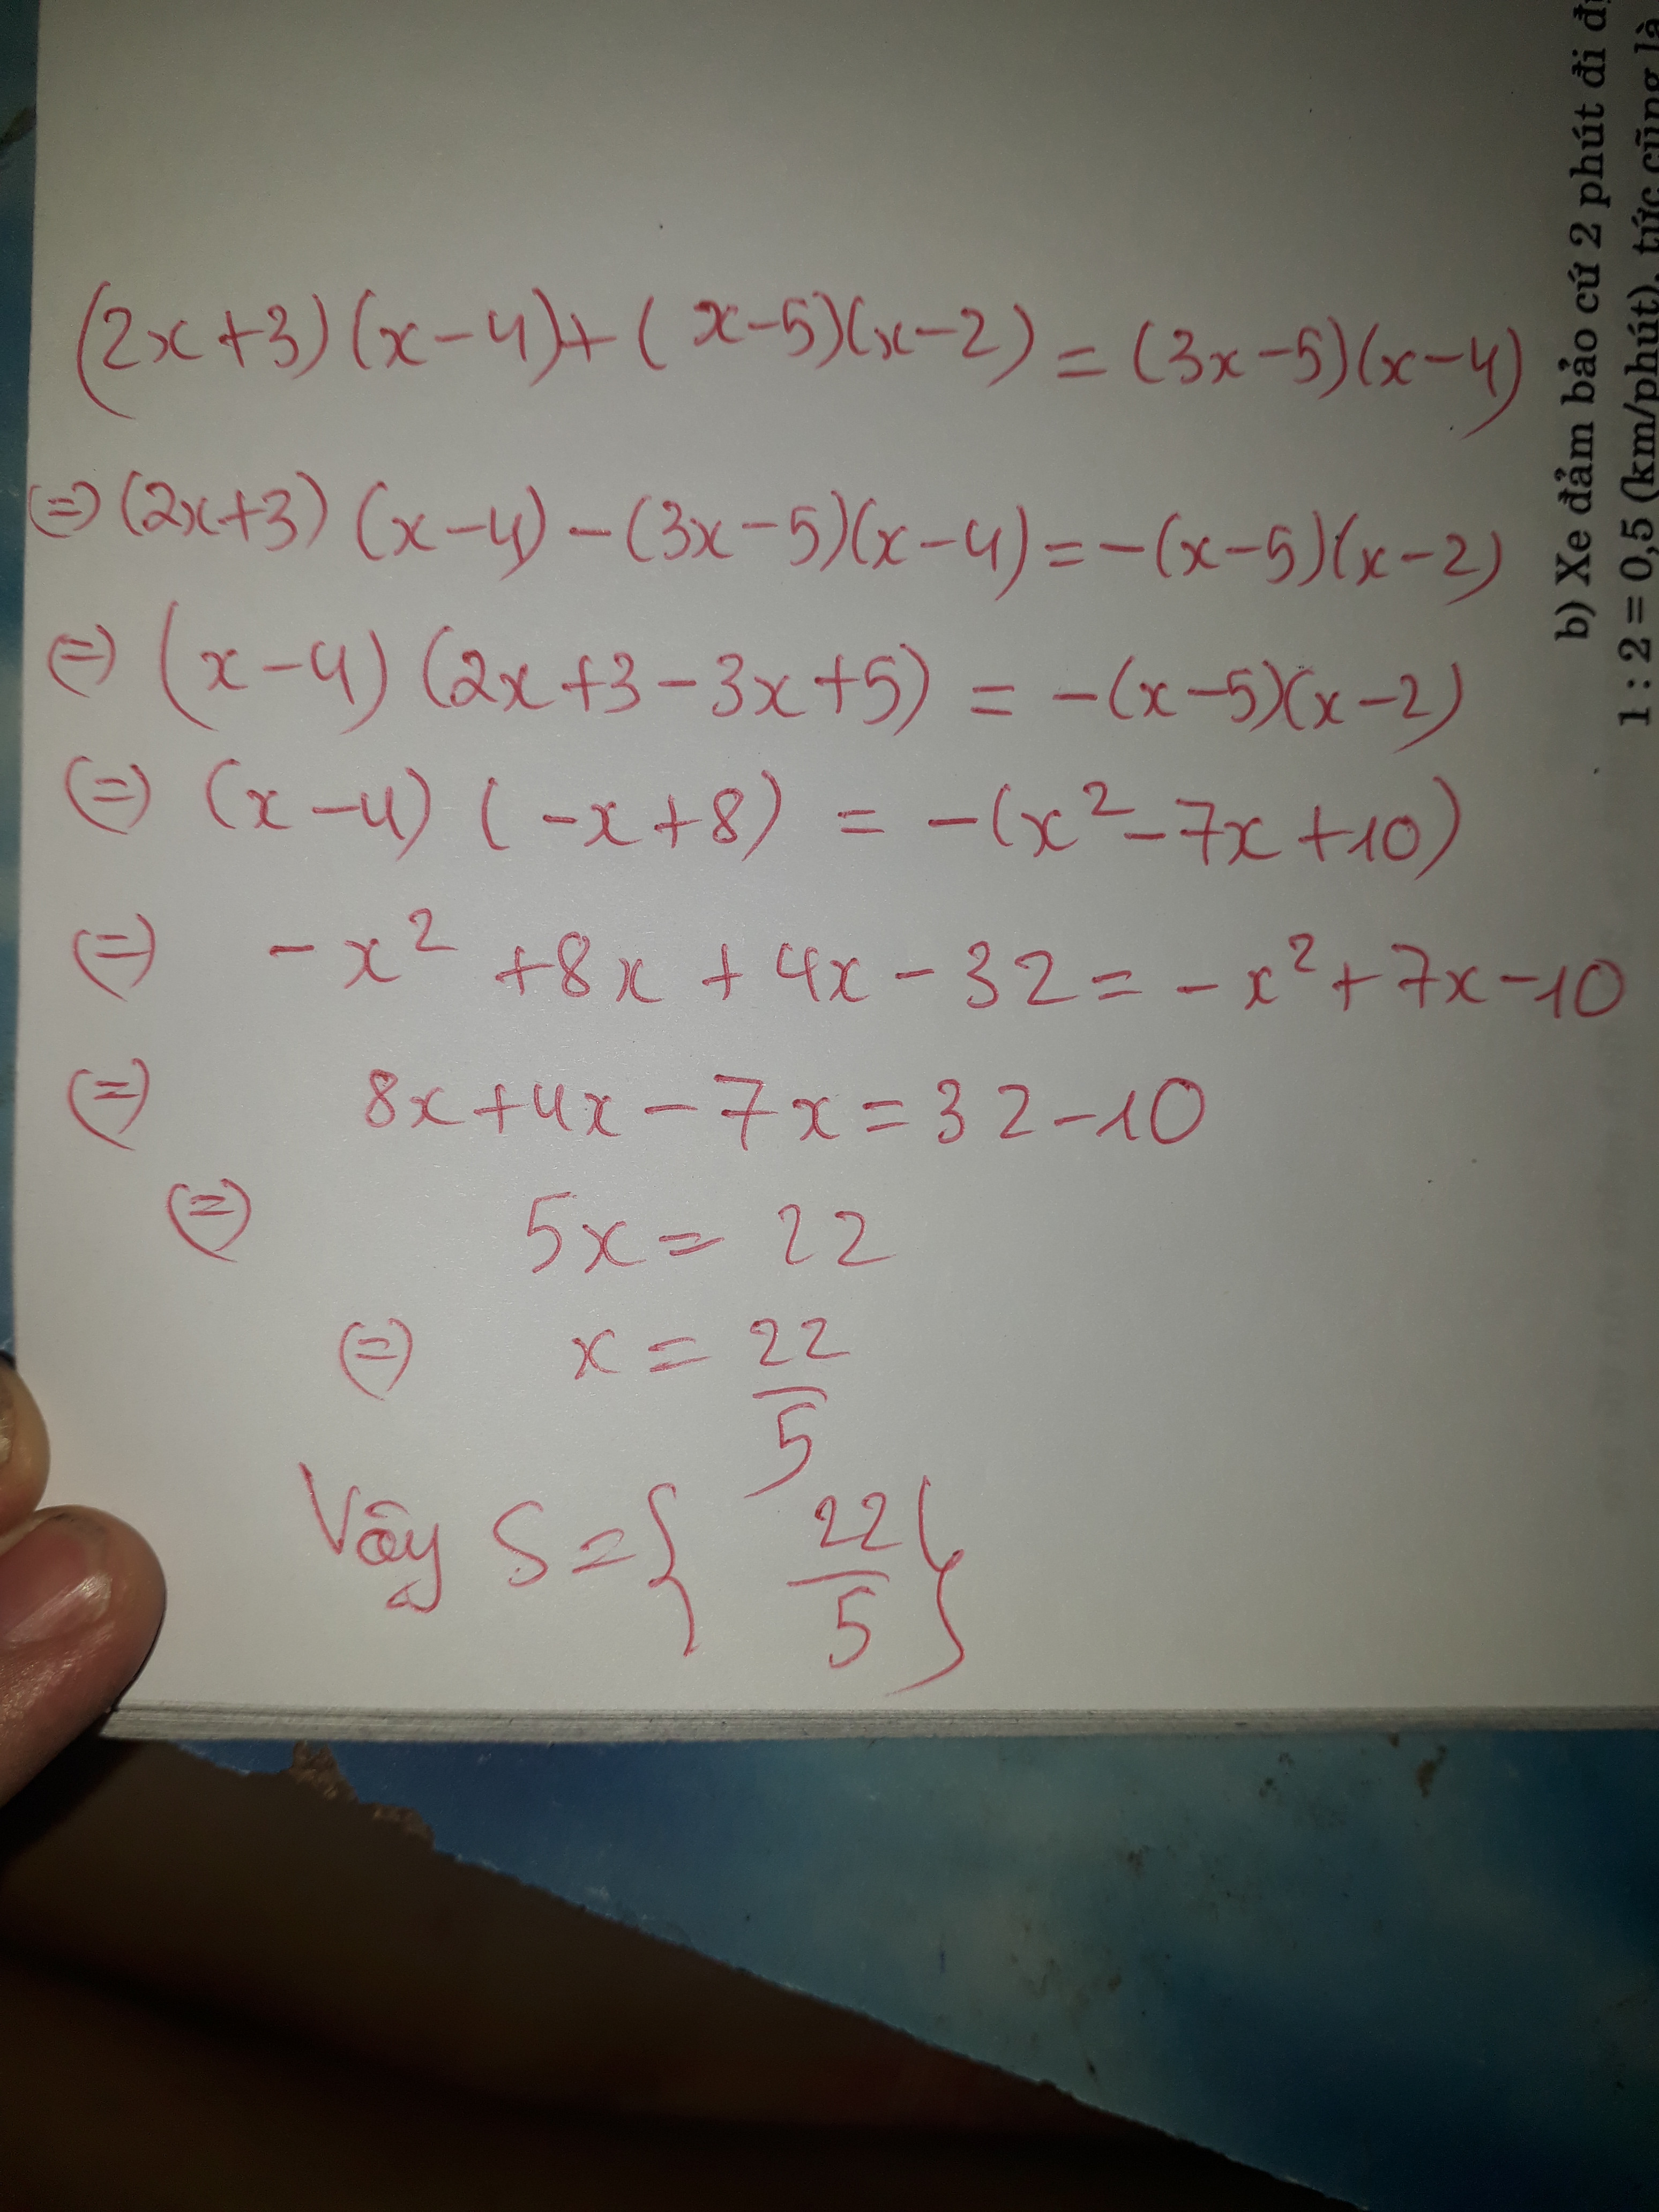 (2x+3)(x-4)+(x-5)(x-2)=(3x-5)(x-4)
(=) (2x+3)(x-4)-(3x-5)(x-4)=-(x-5)(x-2)
(=) (x-4)(2x+3-3x+5)=-(x-5)(x-2)
(=) (x-4)(-x+8)=-(x²-7x+10)
(=) -x²+8x+4x-32=-x²+7x-10
(=) 8x+4x-7x=32-10
(=) 5x=22
(=) x=22/5
Vậy S={22/5}
b) Xe đảm bảo cứ 2 phút đi
1 : 2 = 0,5 (km/phút), tức cũng là